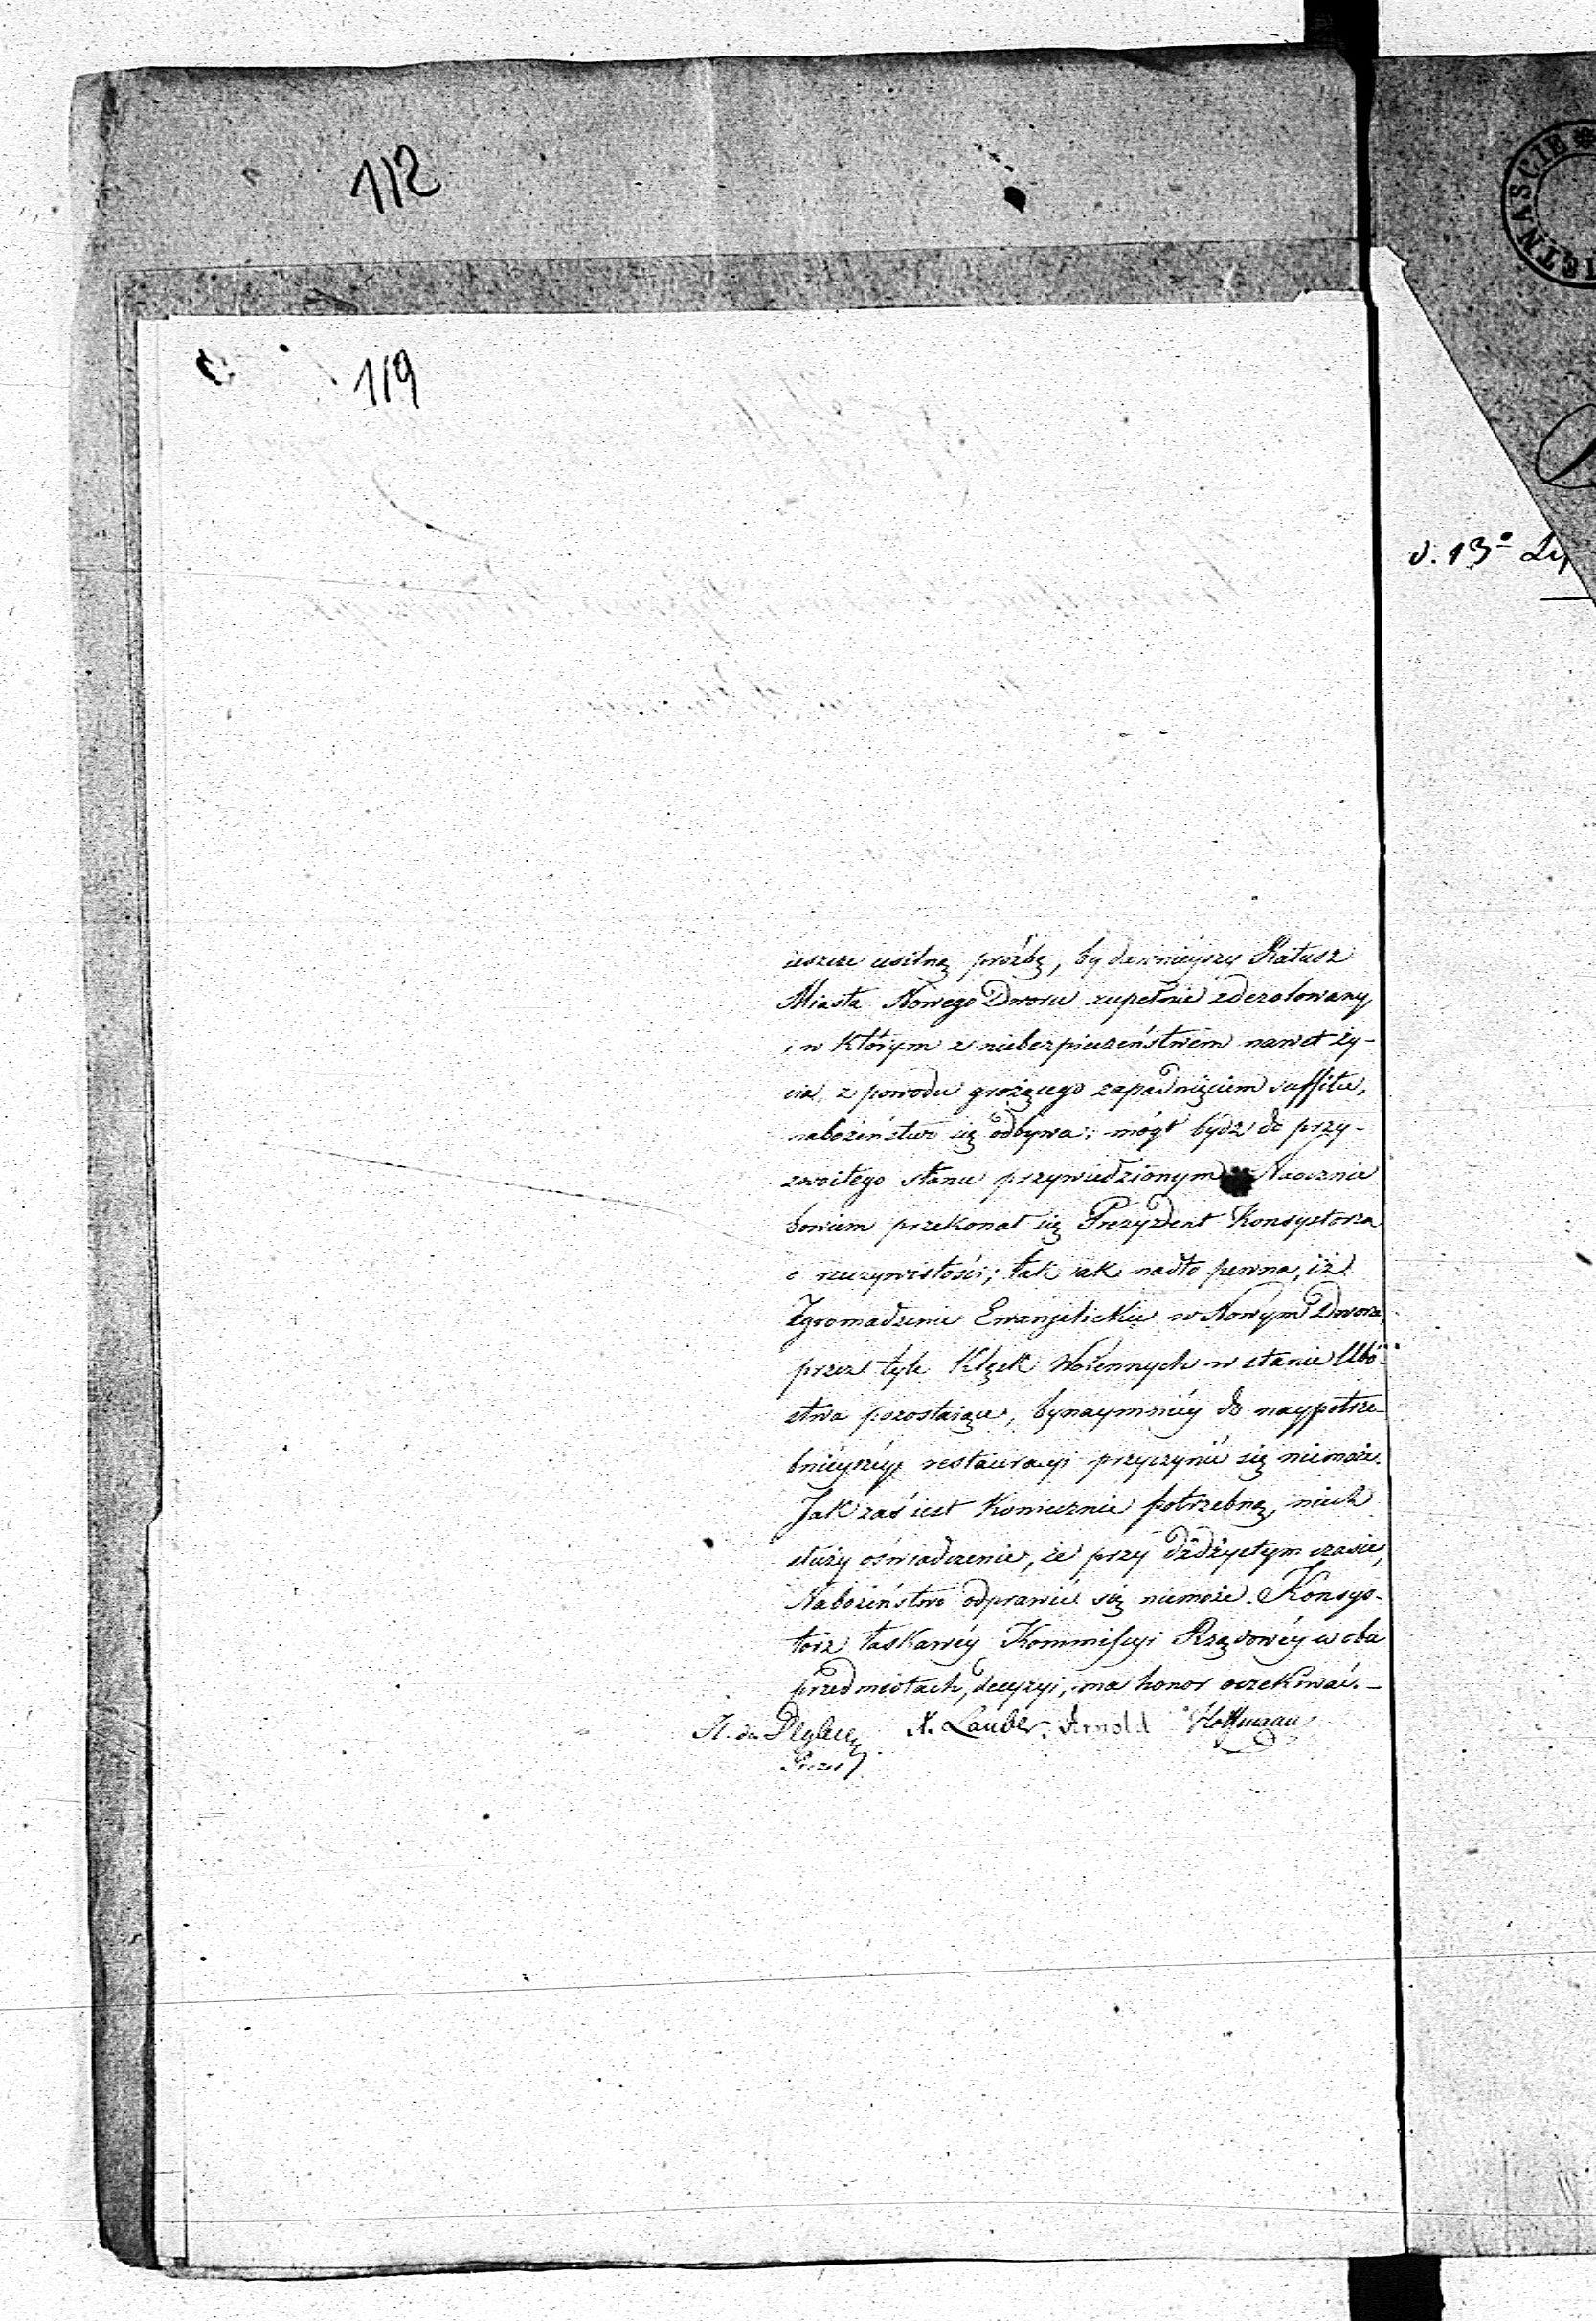 112
119
ieszcze usilną prózbę, by dawnieyszy Ratusz
Miasta Nowego Dworu zupełnie zdezolowany,
i w którym z niebezpieczeństwem nawet ży-
cia, z powodu grożącego zapadnięciem suffitu,
nabożeństwo się odbywa; mógł bydz do przy-
zwoitego stanu przywiedzionym. Naocznie
bowiem przekonał się Prezydent Konsystorza
o rzeczywistości; tak iak nadto pewna, iż
Zgromadzenie Ewanjelickie w Nowym Dworze,
przez tyle klęsk Woiennych w stanie Ubó-
stwa pozostaiące, bynaymniéy do naypotrze-
bnieyszéy restauracyi przyczynić się niemoże.
Jak zaś iest koniecznie potrzebną, niech
służy oświadczenie, że przy dżdżystym czasie,
Nabożeństwo odprawić się niemoże. Konsys-
torz łaskawéy Kommissyi Rządowéy w obu
przedmiotach, decyzyi, ma honor oczekiwać. –
X. Lauber. Arnold Hoffmann
Prezes
d. 13°